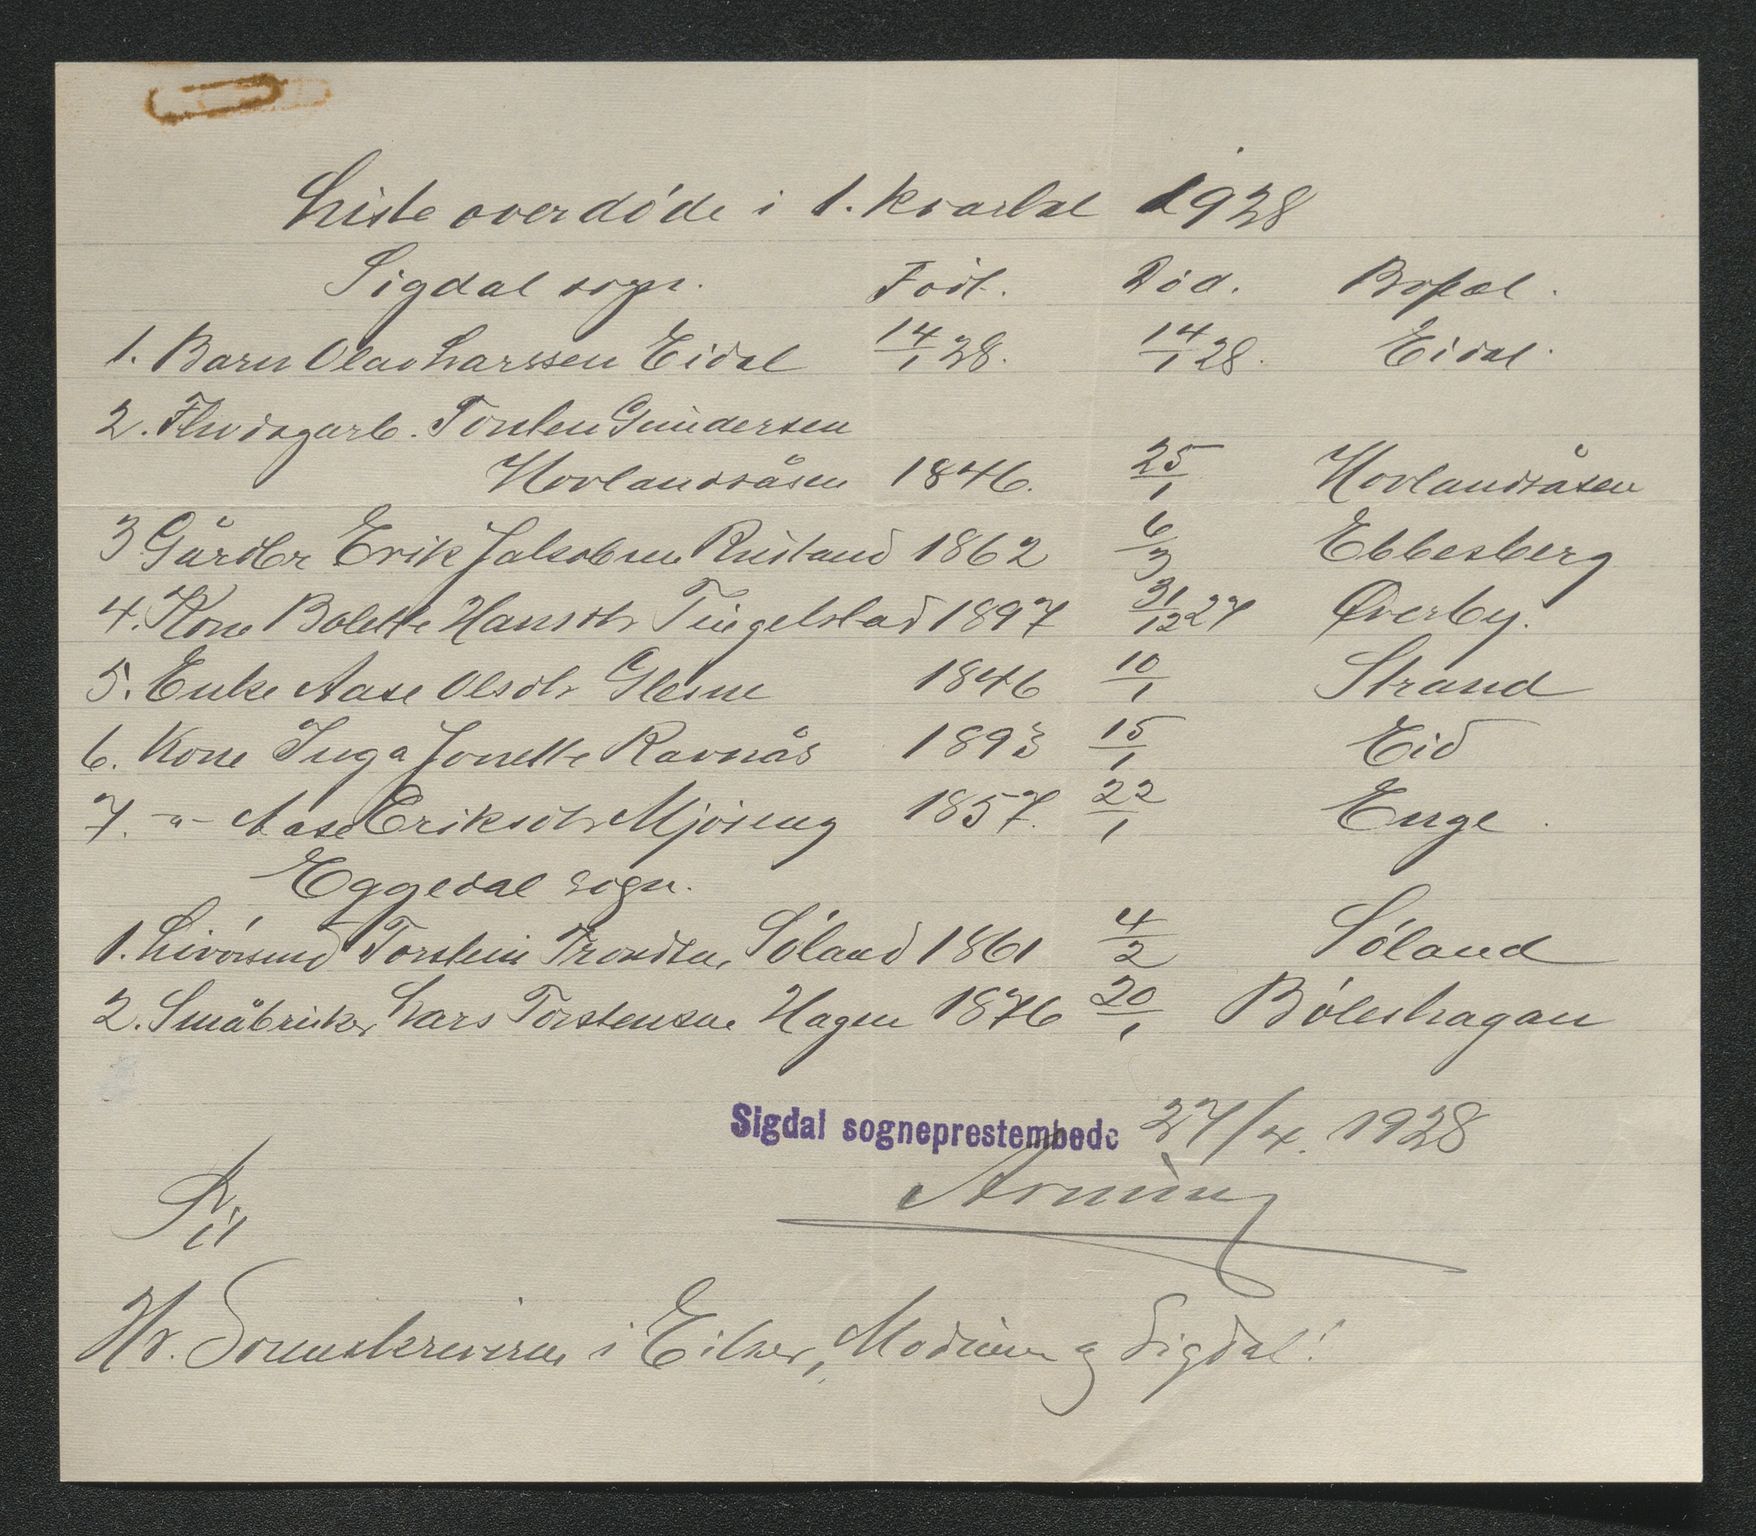 Liste over døde i 1. kvartal 1928
Sigdal sogn. Født. Död. Bopæl.
1. Barn Olav Larssen Eidal 14/1 28. 14/1 28. Eidal.
2. Flödsgarb. Torsten Gundersen
Hovlandsåsen 1846. 25/1 Hovlandsåsen
3 Gårdbr Erik Jakobsen Rustand 1862 6/3 Ebbesberg
4. Kone Bolette Hansdtr Tingelstad 1897 31/12 27 Överby.
5. Enke Aase Olsdtr Glesne 1846 10/1 Strand
6. Kone Inga Jonette Ravnås 1893 15/1 Eid
7. -"- Aase Eriksdtr Mjöseng 1857. 22/1 Enge.
Eggedal sogn.
1. Livörsmd Torstein Trondsen Søland 1861 4/2 Søland
2. Småbruker Lars Torstensen Hagen 1876 20/1 Bøleshagan
Sigdal sogneprestembede 27/4. 1928
Til
Hr. Sorenskriveren i Eiker, Modum og Sigdal!